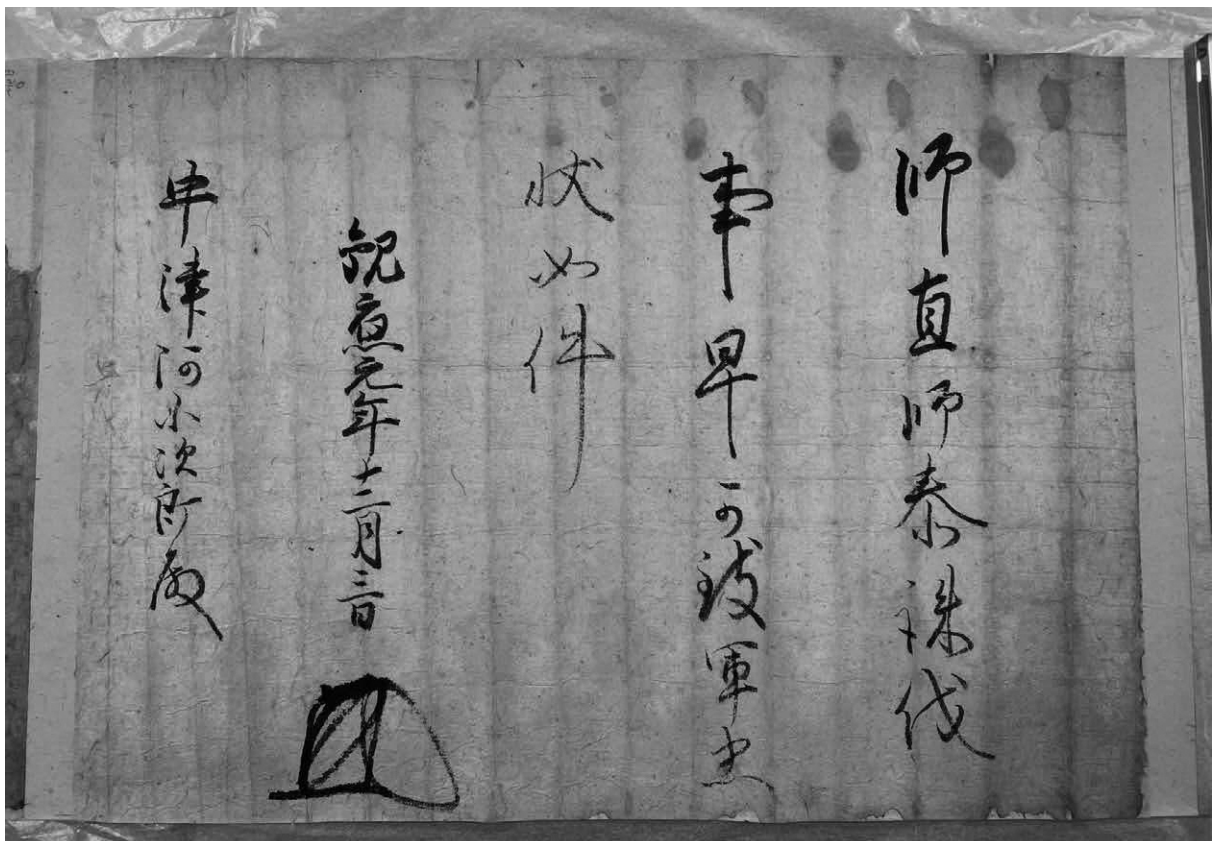 師直師泰誅伐
事早可致軍忠
状如件
観應元年十二月三日
津河小次郎殿